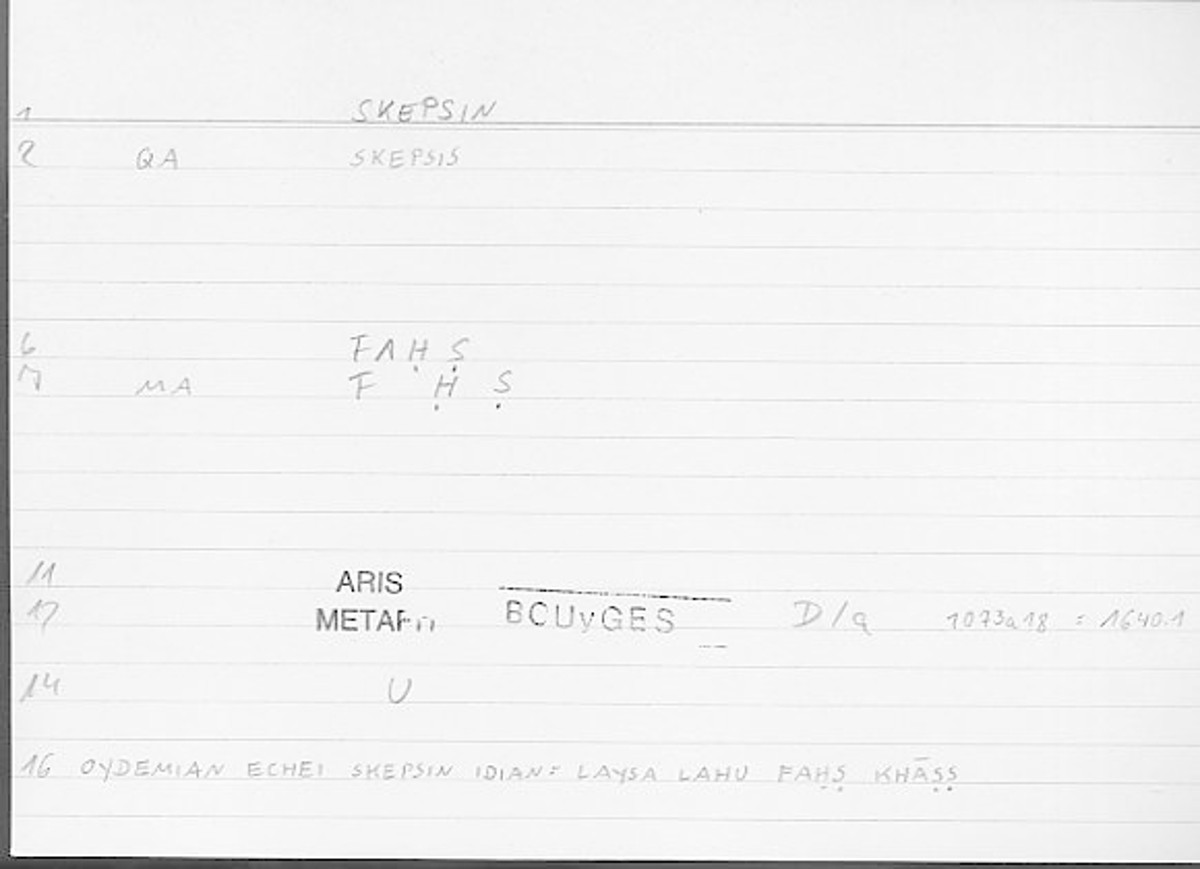 1 SKEPSIN
2 QA SKEPSIS
6 FAḤṢ
7 MA F Ḥ Ṣ
11 ARIS
17 BCUyGES D/a 1073a18 = 1640.1
14 U
16 OYDEMIAN ECHEI SKEPSIN IDIAN = LAYSA LAHU FAḤṢ KHĀṢṢ